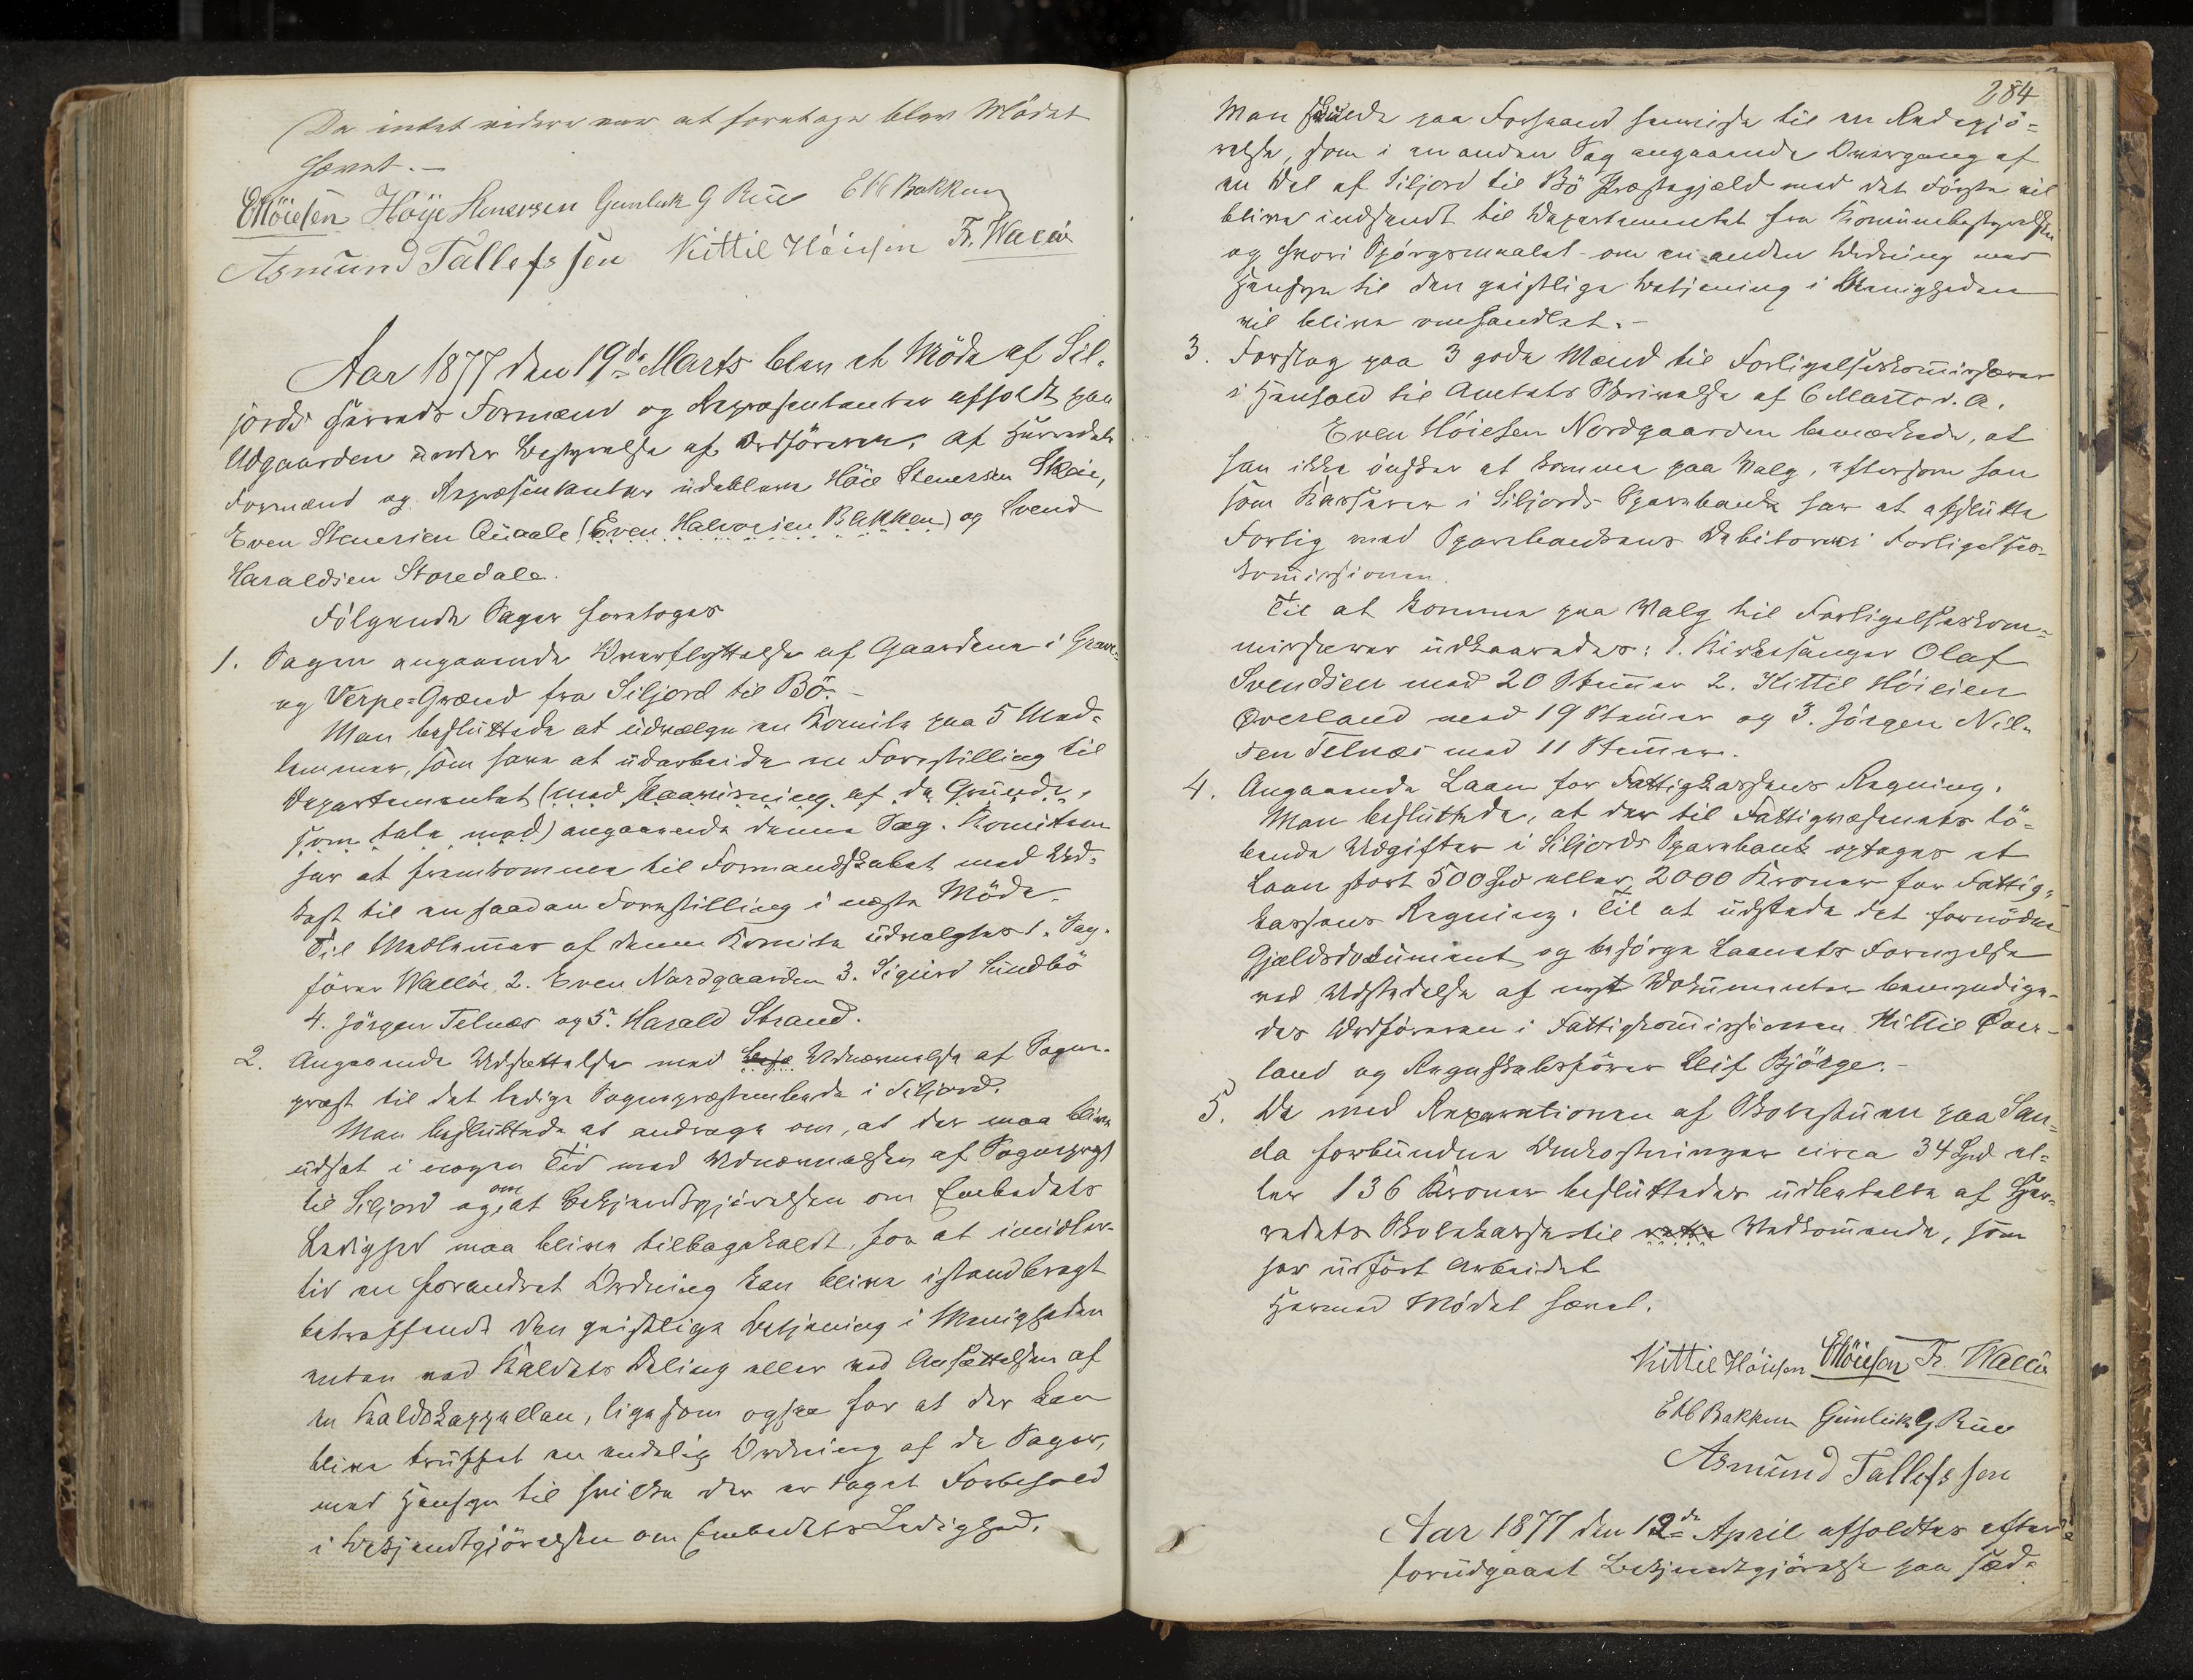 Da intet videre var at foretage blev Mödet
hævet.-
EHöiesen Höije Stenersen Gunleik G Rue EHBakken
Asmund Tallefssen Kittil Höiesen Fr. Walløe
Aar 1877 den 19de Marts blev et Möde af Sil-
jords Herreds Formænd og Repræsentanter afholdt paa
Udgaarden under Bestyrelse af Ordföreren. Af Herredets
Formænd og Repræsentanter udebleve Höie Stenersen Skeie,
Even Stenersen Qvaale (Even Halvorsen Bakken) og Svend
Haraldsen Storedale.
Fölgende Sager foretoges
1. Sagen angaaende Overflyttelse af Gaardene i Grave-
og Verpe-Grænd fra Siljord til Bö.-
Man besluttede at udvælge en Komite paa 5 Med-
lemmer, som have at udarbeide en Forestilling til
Departementet (med Paavisning af de Grunde,
som tale med) angaaende denne Sag. Komiteen
har at fremkomme til Formandskabet med Ud-
kast til en saadan Forestilling i næste Möde.
Til Medlemmer af denne Komite udvalgtes 1. Sag-
förer Wallöe, 2. Even Nordgaarden 3. Sigurd Sundbö
4. Jörgen Telnæs og 5. Harald Strand.
2. Angaaende Udsættelse med Udnævnelse af Sogne-
præst til det ledige Sognepræstembede i Siljord.
Man besluttede at andrage om, at der maa blive
udsat i nogen Tid med Udnævnelsen af Sognepræst
til Siljord og om, at Bekjendtgjörelsen om Embedets
Ledighed maa blive tilbagekaldt, for at imidler-
tid en forandret Ordning kan blive istandbragt
betræffende den geistlige Betjening i Menigheden
enten ved Kaldets Deling eller ved Ansættelsen af
en Kaldskappellan, ligesom ogsaa for at der kan
blive truffet en endelig Ordning af de Sager,
med Hensyn til hvilke der er taget Forbehold
i Bekjendtgjörelsen om Embedets Ledighed.
284
Man skulde paa Forhaand henvise til en Redegjö-
relse, som i en anden Sag angaaende Overgang af
en Del af Siljord til Bö Præstegjæld med det Förste vil
blive indsendt til Departementet fra Kommunebestyrelsen
og hvori Spörgsmaalet om en anden Ordning med
Hensyn til den geistlige Betjening i Menigheden
vil blive omhandlet.-
3. Forslag paa 3 gode Mænd til Forligelseskommissærer
i Henhold til Amtets Skrivelse af 6 Marts d. A.
Even Höiesen Nordgaarden bemærkede, at
han ikke önsker at komme paa Valg, eftersom han
som Kasserer i Siljords Sparebank har at afslutte
Forlig med Sparebankens Debitorer i Forligelses-
kommissionen.
Til at komme paa Valg til Forligelseskom-
missærer udkaaredes: 1. Kirkesanger Olaf
Svendsen med 20 Stemmer 2. Kittil Höiesen
Øverland med 19 Stemmer og 3. Jörgen Nil-
sen Telnæs med 11 Stemmer.
4. Angaaende Laan for Fattigkassens Regning.
Man besluttede, at der til Fattigvæsenets lö-
bende Udgifter i Siljords Sparebank optages et
Laan stort 500 Spd eller 2000 Kroner for Fattig-
kassens Regning. Til at udstede det fornödne
Gjældsdokument og besörge Laanets Fornyelse
ved Udstedelse af nyt Dokumenter bemyndige-
des Ordföreren i Fattigkommissionen Kittil Över-
land og Regnskabsförer Leif Björge.-
5. De med Reparationen af Skolestuen paa San-
da forbundne Omkostninger circa 34 Spd el-
ler 136 Kroner besluttedes udbetalte af Her-
redets Skolekasse til rette Vedkommende, som
har udfört Arbeidet
Hermed Mödet hævet.
Kittil Höiesen EHöiesen Fr. Walløe
EHBakken Gunleik G Rue
Asmund Tallefssen
Aar 1877 den 12de April afholdtes efter
forudgaaet Bekjendtgjörelse paa sæd-